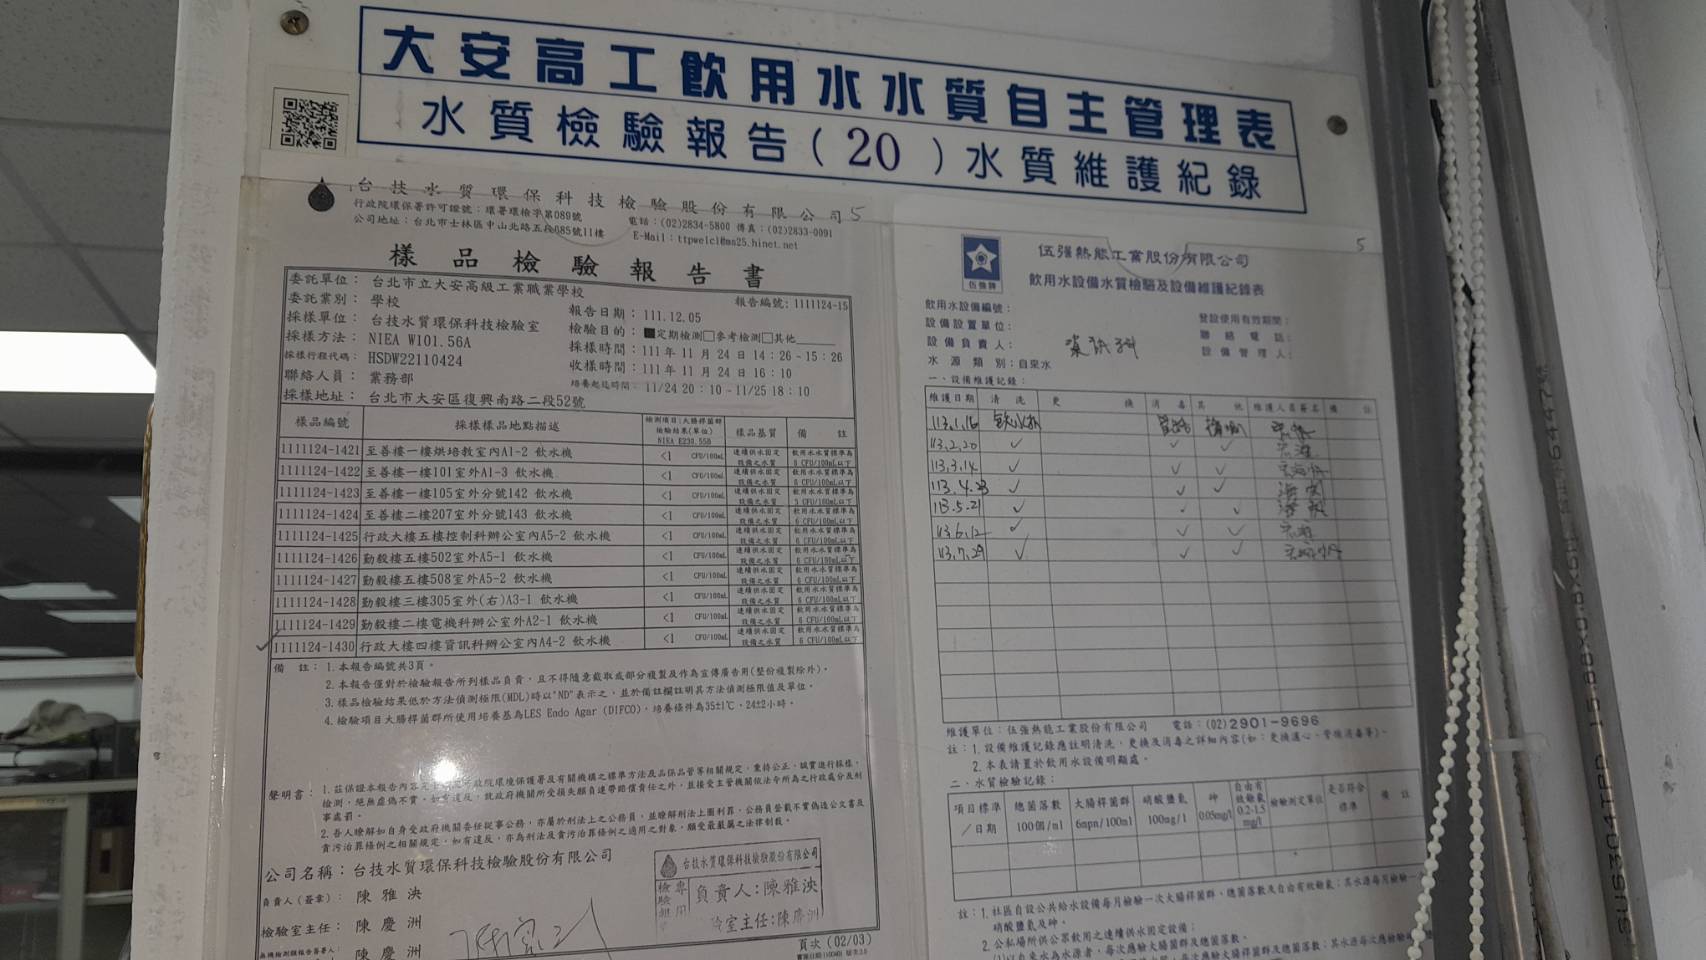 大安高工飲用水水質自主管理表
水質檢驗報告(20)水質維護紀錄
台技水質環保科技檢驗股份有限公司 5
行政院環保署許可證號:環署環檢字第089號
公司地址:台北市士林區中山北路五段685號11樓
電話:(02)2834-5800 傳真:(02)2833-0091
E-Mail:ttpwelcl@ms25.hinet.net
樣品檢驗報告書
委託單位:台北市立大安高級工業職業學校
報告編號:1111124-15
委託業別:學校
報告日期:111.12.05
採樣單位:台技水質環保科技檢驗室
檢驗目的:■定期檢測□參考檢測□其他
採樣方法:NIEA W101.56A
採樣時間:111年11月24日14:26~15:26
採樣行程代碼:HSDW22110424
收樣時間:111年11月24日16:10
聯絡人員:業務部
培養起迄時間:11/24 20:10~11/25 18:10
採樣地址:台北市大安區復興南路二段52號
樣品編號 採樣樣品地點描述 檢測項目:大腸桿菌群 檢驗結果(單位) NIEA E230.55B 樣品基質 備註
1111124-1421 至善樓一樓烘培教室內A1-2 飲水機 <1 CFU/100mL 連續供水固定設備之水質 飲用水水質標準為6 CFU/100mL以下
1111124-1422 至善樓一樓101室外A1-3 飲水機 <1 CFU/100mL 連續供水固定設備之水質 飲用水水質標準為6 CFU/100mL以下
1111124-1423 至善樓一樓105室外分號142 飲水機 <1 CFU/100mL 連續供水固定設備之水質 飲用水水質標準為6 CFU/100mL以下
1111124-1424 至善樓二樓207室外分號143 飲水機 <1 CFU/100mL 連續供水固定設備之水質 飲用水水質標準為6 CFU/100mL以下
1111124-1425 行政大樓五樓控制科辦公室內A5-2 飲水機 <1 CFU/100mL 連續供水固定設備之水質 飲用水水質標準為6 CFU/100mL以下
1111124-1426 勤毅樓五樓502室外A5-1 飲水機 <1 CFU/100mL 連續供水固定設備之水質 飲用水水質標準為6 CFU/100mL以下
1111124-1427 勤毅樓五樓508室外A5-2 飲水機 <1 CFU/100mL 連續供水固定設備之水質 飲用水水質標準為6 CFU/100mL以下
1111124-1428 勤毅樓三樓305室外(右)A3-1 飲水機 <1 CFU/100mL 連續供水固定設備之水質 飲用水水質標準為6 CFU/100mL以下
1111124-1429 勤毅樓二樓電機科辦公室外A2-1 飲水機 <1 CFU/100mL 連續供水固定設備之水質 飲用水水質標準為6 CFU/100mL以下
1111124-1430 行政大樓四樓資訊科辦公室內A4-2 飲水機 <1 CFU/100mL 連續供水固定設備之水質 飲用水水質標準為6 CFU/100mL以下
備註:1.本報告編號共3頁。
2.本報告僅對於檢驗報告所列樣品負責,且不得隨意截取或部分複製及作為宣傳廣告用(整份複製除外)。
3.樣品檢驗結果低於方法偵測極限(MDL)時以"ND"表示之,並於備註欄註明其方法偵測極限值及單位。
4.檢驗項目大腸桿菌群所使用培養基為LES Endo Agar (DIFCO),培養條件為35±1℃、24±2小時。
聲明書:1.茲保證本報告內容 行政院環境保護署及有關機構之標準方法及品保品管等相關規定,秉持公正、誠實進行採樣、
檢測,絕無虛偽不實,如有違反,就政府機關所受損失願負連帶賠償責任之外,並接受主管機關依法令所為之行政處分及刑
事處罰。
2.吾人瞭解如自身受政府機關委任從事公務,亦屬於刑法上之公務員,並瞭解刑法上圖利罪、公務員登載不實偽造公文書及
貪污治罪條例之相關規定,如有違反,亦為刑法及貪污治罪條例之適用之對象,願受最嚴厲之法律制裁。
公司名稱:台技水質環保科技檢驗股份有限公司
負責人(簽章):陳雅泱
檢驗室主任:陳慶洲
陳慶洲
台技水質環保科技檢驗股份有限公司
檢驗專用
負責人:陳雅泱
驗室主任:陳慶洲
頁次(02/03)
5
伍強牌
伍强熱能工業股份有限公司
飲用水設備水質檢驗及設備維護紀錄表
飲用水設備編號:
設備設置單位:
設備負責人: 資訊科
水源類別:自來水
登設使用有效期間:
聯絡電話:
設備管理人:
一、設備維護記錄:
維護日期 清洗 更換 消毒 其他 維護人員簽名 備註
113.1.16
113.2.20 ✓ ✓ ✓
113.3.14 ✓ ✓ ✓
113.4.23 ✓ ✓ ✓
113.5.21 ✓ ✓ ✓
113.6.12 ✓ ✓ ✓
113.7.29 ✓ ✓ ✓
維護單位:伍强熱能工業股份有限公司 電話:(02)2901-9696
註:1.設備維護記錄應註明清洗、更換及消毒之詳細內容(如:更換濾心、管換消毒等)。
2.本表請置於飲用水設備明顯處。
二、水質檢驗記錄:
項目標準/日期 總菌落數 100個/ml 大腸桿菌群 6mpn/100ml 硝酸鹽氮 100mg/l 砷 0.05mg/l 自由有效餘氯 0.2-1.5 mg/l 檢驗測定單位 是否符合標準 備註
註:1.社區自設公共給水設備每月檢驗一次大腸桿菌群、總菌落數及自由有效餘氯;其水源每月檢驗一
硝酸鹽氮及砷。
2.公私場所供公眾飲用之連續供水固定設備:
(1)以自來水為水源者,每次應驗大腸桿菌群及總菌落數;其水源每次應檢驗
SUS304TPD 15.88×0.8×6M 6447